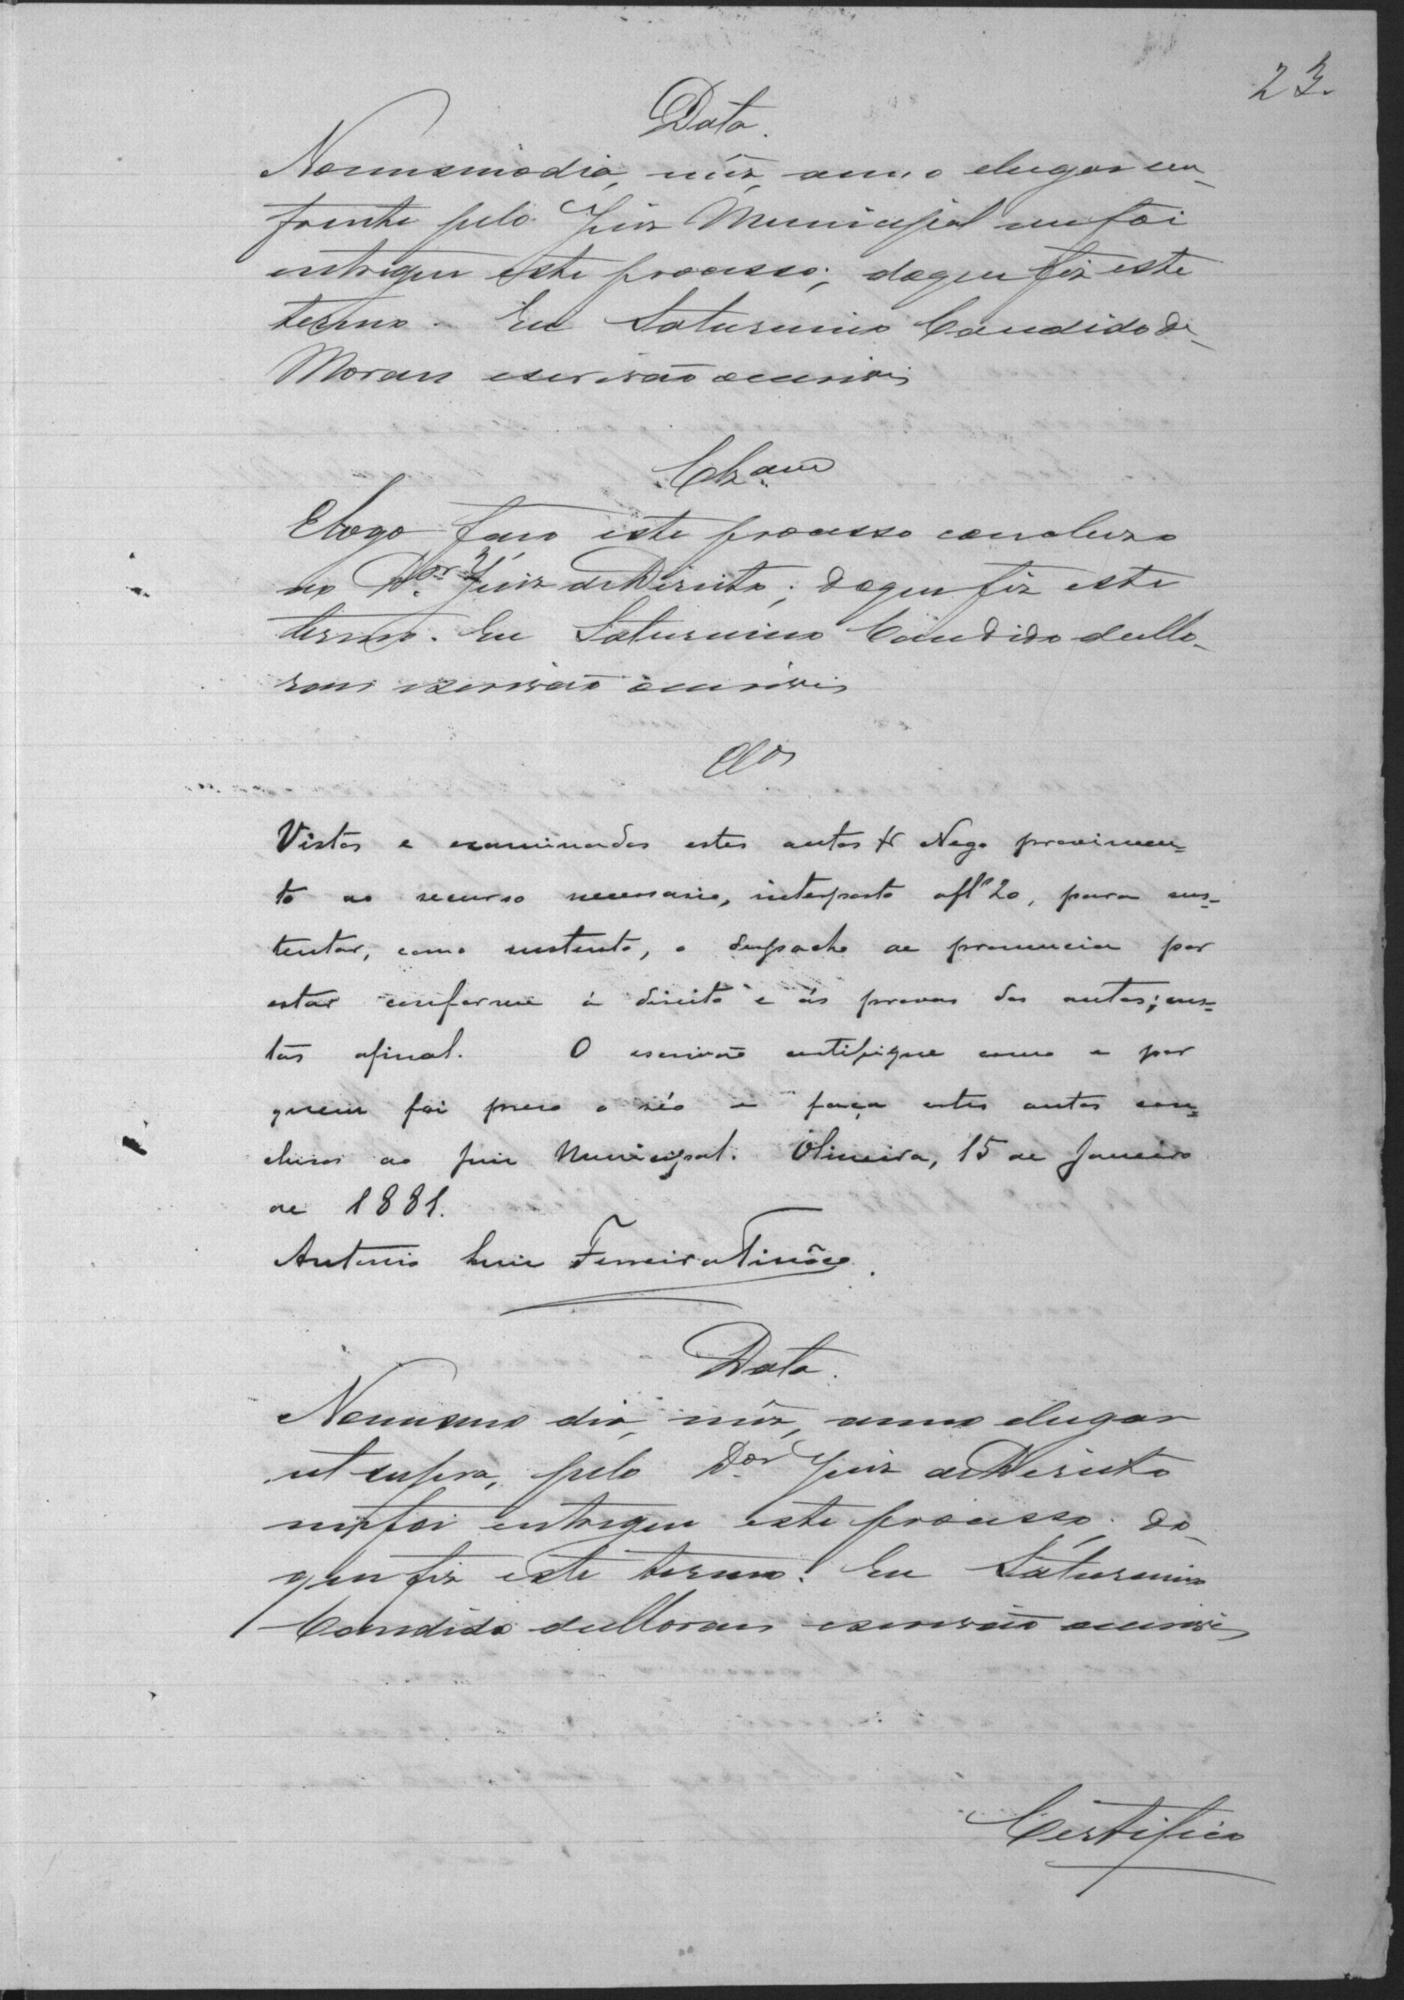 23.
Data.
No mesmo dia, mêz, anno elugar em
frente pelo Juiz Municipal me foi
entregue este processo; doque fiz este
termo. Eu Saturnino Candido de
Moraes escrivão escrevi
Clz.am
Elogo faço este processo concluzo
ao D.or Juiz de Direito; doque fiz este
termo. Eu Saturnino Candido deMo-
raes escrivão escrevi
Clos
Vistos e examinados estes autos &. Nego provimen=
to ao recurso necessario, interposto a fls 20, para sus=
tentar, como sustento, o despacho de pronuncia por
estar conforme á direito e ás provas dos autos; cus=
tas afinal. O escrivão certifique como e por
quem foi preso o réo e faça estes autos con=
clusos ao Juiz Municipal. Oliveira, 15 de Janeiro
de 1881.
Antonio Luiz Ferreira Tinôco.
Data.
No mesmo dia, mêz, anno elugar
ut supra, pelo D.or Juiz de Direito
me foi entregue este processo; do
que fiz este termo. Eu Saturnino
Candido deMoraes escrivão escrevi
Certifico